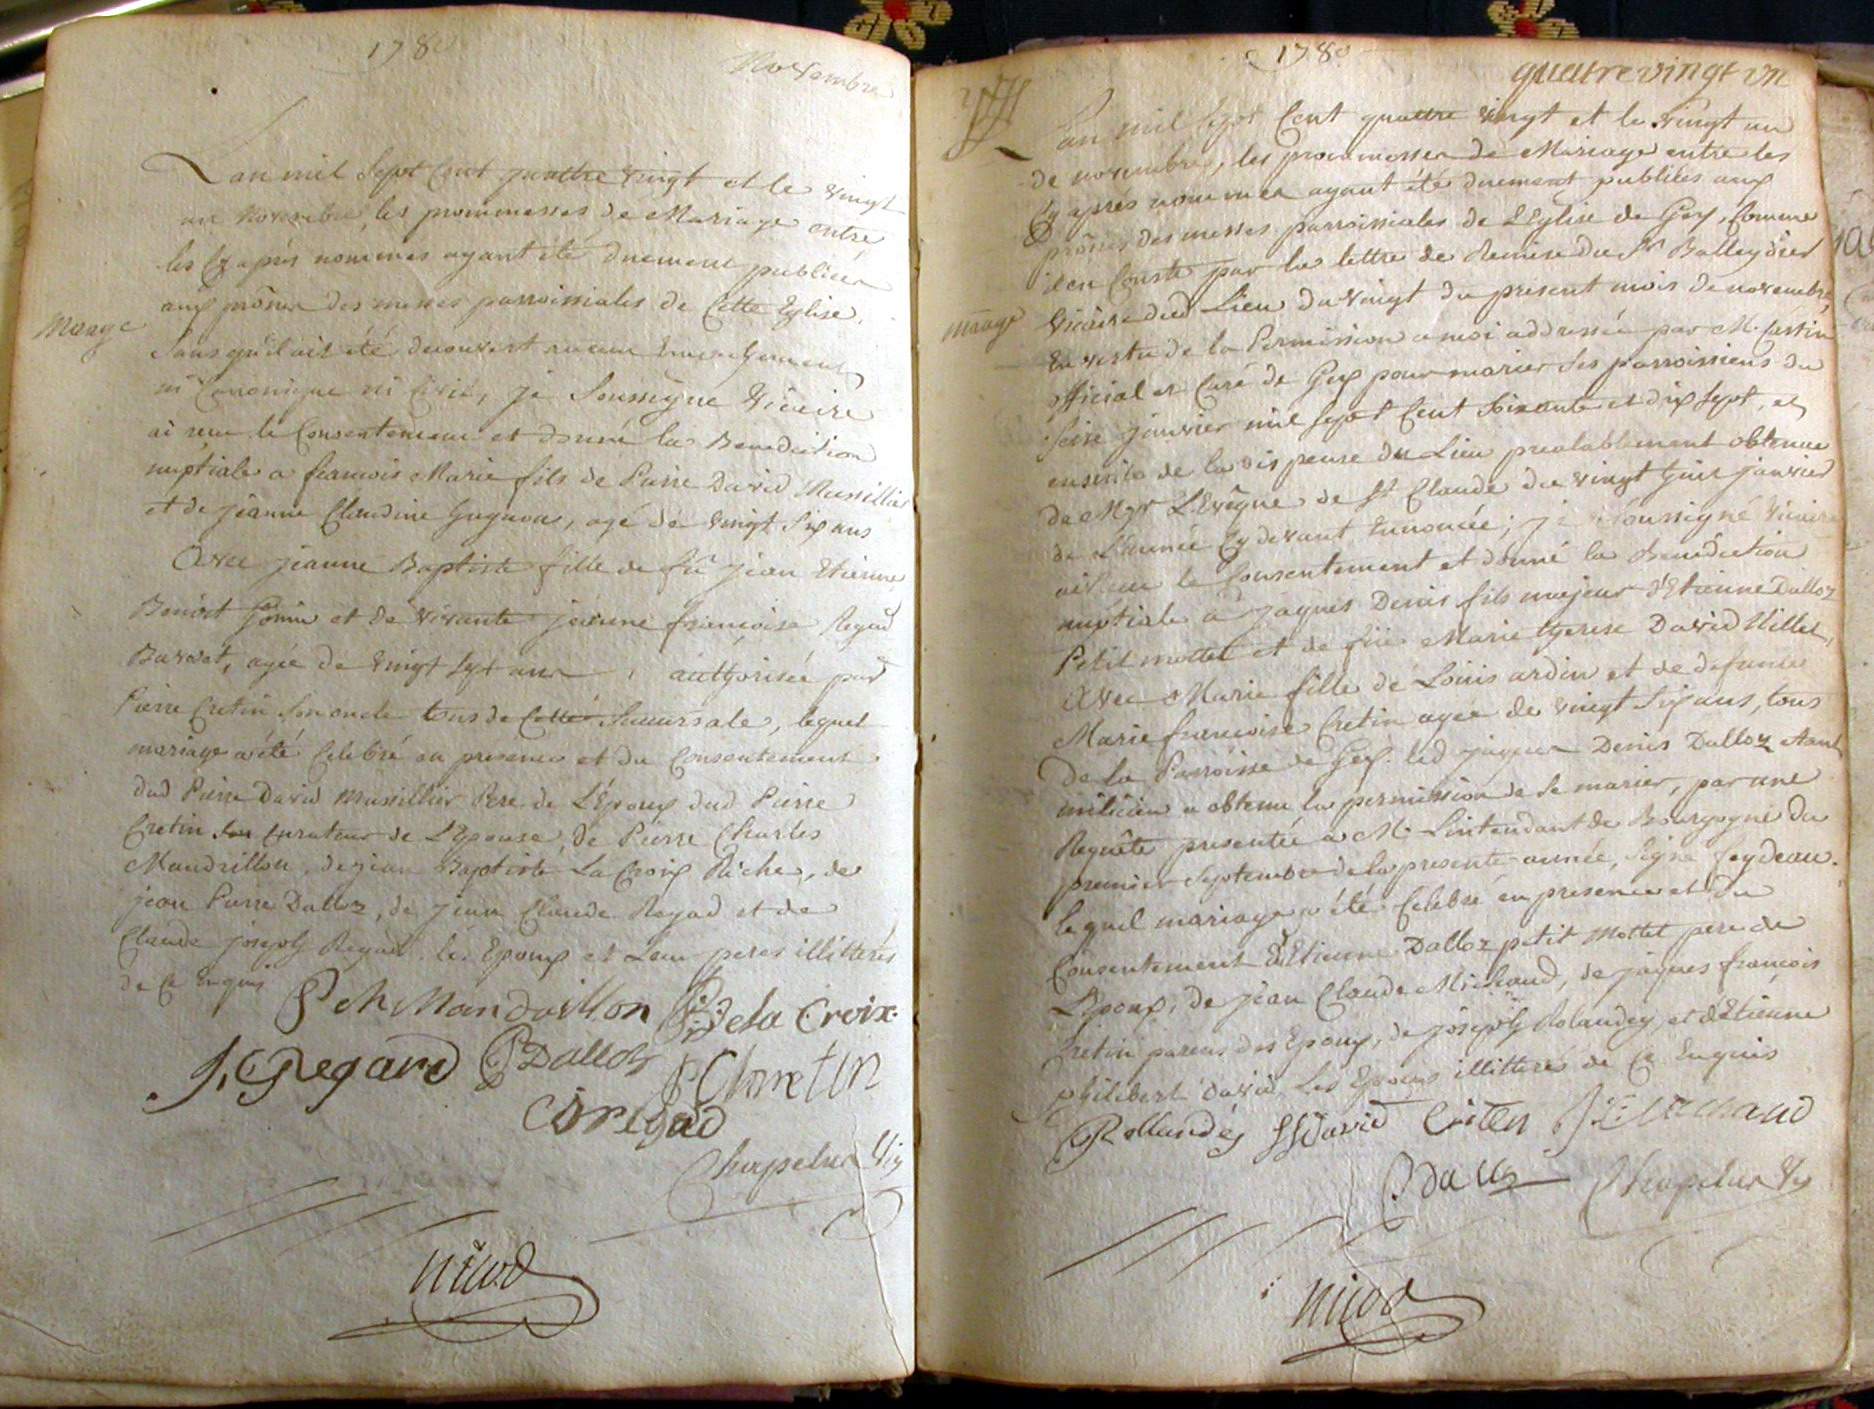 1780
Novembre
L'an mil Sept Cent quattre vingt et le vingt
un Novembre, les prommesses de Mariage entre
les Cy après nommés ayant été duement publiées
aux prônes des messes parroissiales de Cette Eglise,
Mariage
Sans qu'il ait été decouvert aucun Empechement
ni Canonique ni Civil, je Soussigné Vicaire
ai reçu le Consentement et donné la Benediction
nuptiale a francois Marie fils de Pierre David Missillier
et de jeanne Claudine Gugnon, agé de vingt Six ans
Avec jeanne Baptiste fille de feu jean Etienne
Benoit Gonin et de vivante jeanne françoise Regad
Barodet, agée de vingt Sept ans, authorisée par
Pierre Cretin Son oncle tous de Cette Succursale, lequel
mariage a été Celebré en presence et du Consentement
dud Pierre David Missillier Pere de L'Epoux dud Pierre
Cretin Son Curateur de L'Epouse, de Pierre Charles
Mandrillon, de jean Baptiste La Croix Riche, de
jean Pierre Dalloz, de jean Claude Regad et de
Claude joseph Regad. les Epoux et Leur peres illitterés
de Ce Enquis
P Ch Mandrillon
de la Croix
J, C Regard
P Dalloz
P Cretin
C j regad
Chapelu Vic
Nicod
1780
quatre vingt un
L'an mil Sept Cent quattre vingt et le vingt un
de novembre, les prommesses de Mariage entre les
Cy après nommés ayant été duement publiées aux
prônes des messes parroissiales de L'Eglise de Gex, Comme
il en Conste par la lettre de Remise du Sr Balleydier
Vicaire dud Lieu du vingt du present mois de novembre,
mariage
En vertu de la Permission a moi addressée par M. Castin
official et Curé de Gex pour marier Ses parroissiens du
seize janvier mil Sept Cent Soixante et dix Sept, et
ensuite de la dispense du Lieu prealablement obtenue
de Mgr L'Evêque de St Claude du vingt huit janvier
de L'année Cy devant Enoncée; je Soussigné Vicaire
ai reçu le Consentement et donné la Benediction
nuptiale à jaques Denis fils majeur d'Etienne Dalloz
Petit mottet et de feüe Marie therese David Millet,
Avec Marie fille de Loüis ardin et de defunte
Marie françoise Cretin agée de vingt Six ans, tous
de la Parroisse de Gex. led jaques Denis Dalloz étant
milicien a obtenu la permission de Se marier, par une
Requête presentée a M. L'intendant de Bourgogne du
premier Septembre de la presente année, Signé feydeau.
lequel mariage a été Celebré en presence et du
Consentement d'Etienne Dalloz petit Mottet pere de
L'Epoux, de jean Claude Michaud, de jaques francois
Cretin parens des Epoux, de joseph Rolandez et d'Etienne
philibert David Les Epoux illitterés de Ce Enquis
Rollandéz
David
Creten
Michaud
Dalloz
Chapelu Vic
Nicod